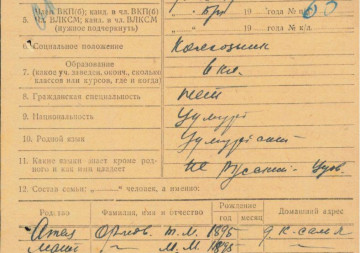 5. Член ВКП(б); канд. в чл. ВКП(б) 19 года № п/б
Член ВЛКСМ; канд. в чл. ВЛКСМ 19 года № к/п.
(нужное подчеркнуть)
6. Социальное положение Колхозник
7. Образование
(какое уч. заведен. оконч., сколько
классов или курсов, где и когда) кл.
8. Гражданская специальность нет
9. Национальность Удмурт
10. Родной язык Удмуртский
11. Какие языки знает кроме род-
ного и как ими владеет Русский - Удов.
12. Состав семьи: „——“ человек, а именно:
Родство Фамилия, имя и отчество Рождение Домашний адрес
год месяц
Отец Т. М. 1895
Мать " М. М. 1895